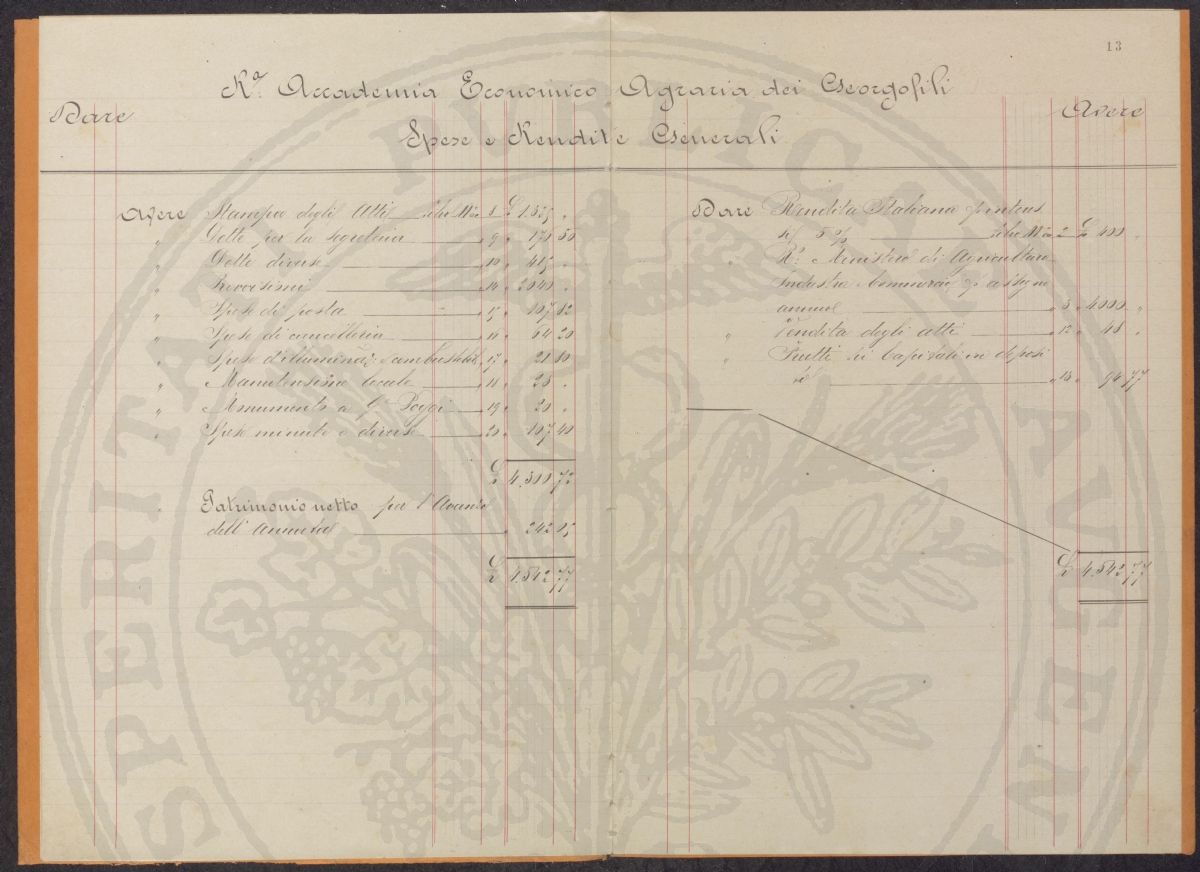 13
Ra. Accademia Economico Agraria dei Georgofili
Dare Avere
Spese e Rendite Generali
Avere Stampa degli Atti Libro Mro 8 £ 1325 "
" Dette per la segreteria " 9 " 170 50
" Dette diverse " 10 " 415 "
" " 14 " 2040 "
" Spese di posta " 15 " 107 82
" Spese di cancelleria " 16 " 64 20
" Spese d'illuminaz: e combustibile " 17 " 21 80
" Manutensione locale " 18 " 28 "
" Monumento a Poggi " 19 " 20 "
" Spese minute e diverse " 20 " 107 40
£ 4.300 72
" Patrimonio netto per l'Avanzo
dell'Annata " 242 05
£ 4.542 77
Dare Rendita Italiana
5 % Libro Mro 2 £ 400 "
" R. Ministero di Agricoltura
Industria Commercio p. assegno
annuo " 3 " 4000 "
" Vendita degli atti " 12 " 48 "
" Frutti di Capitali in deposi
to " 13 " 94 77
£ 4.542 77
PROSPERITATI PUBLICAE AUGENDAE